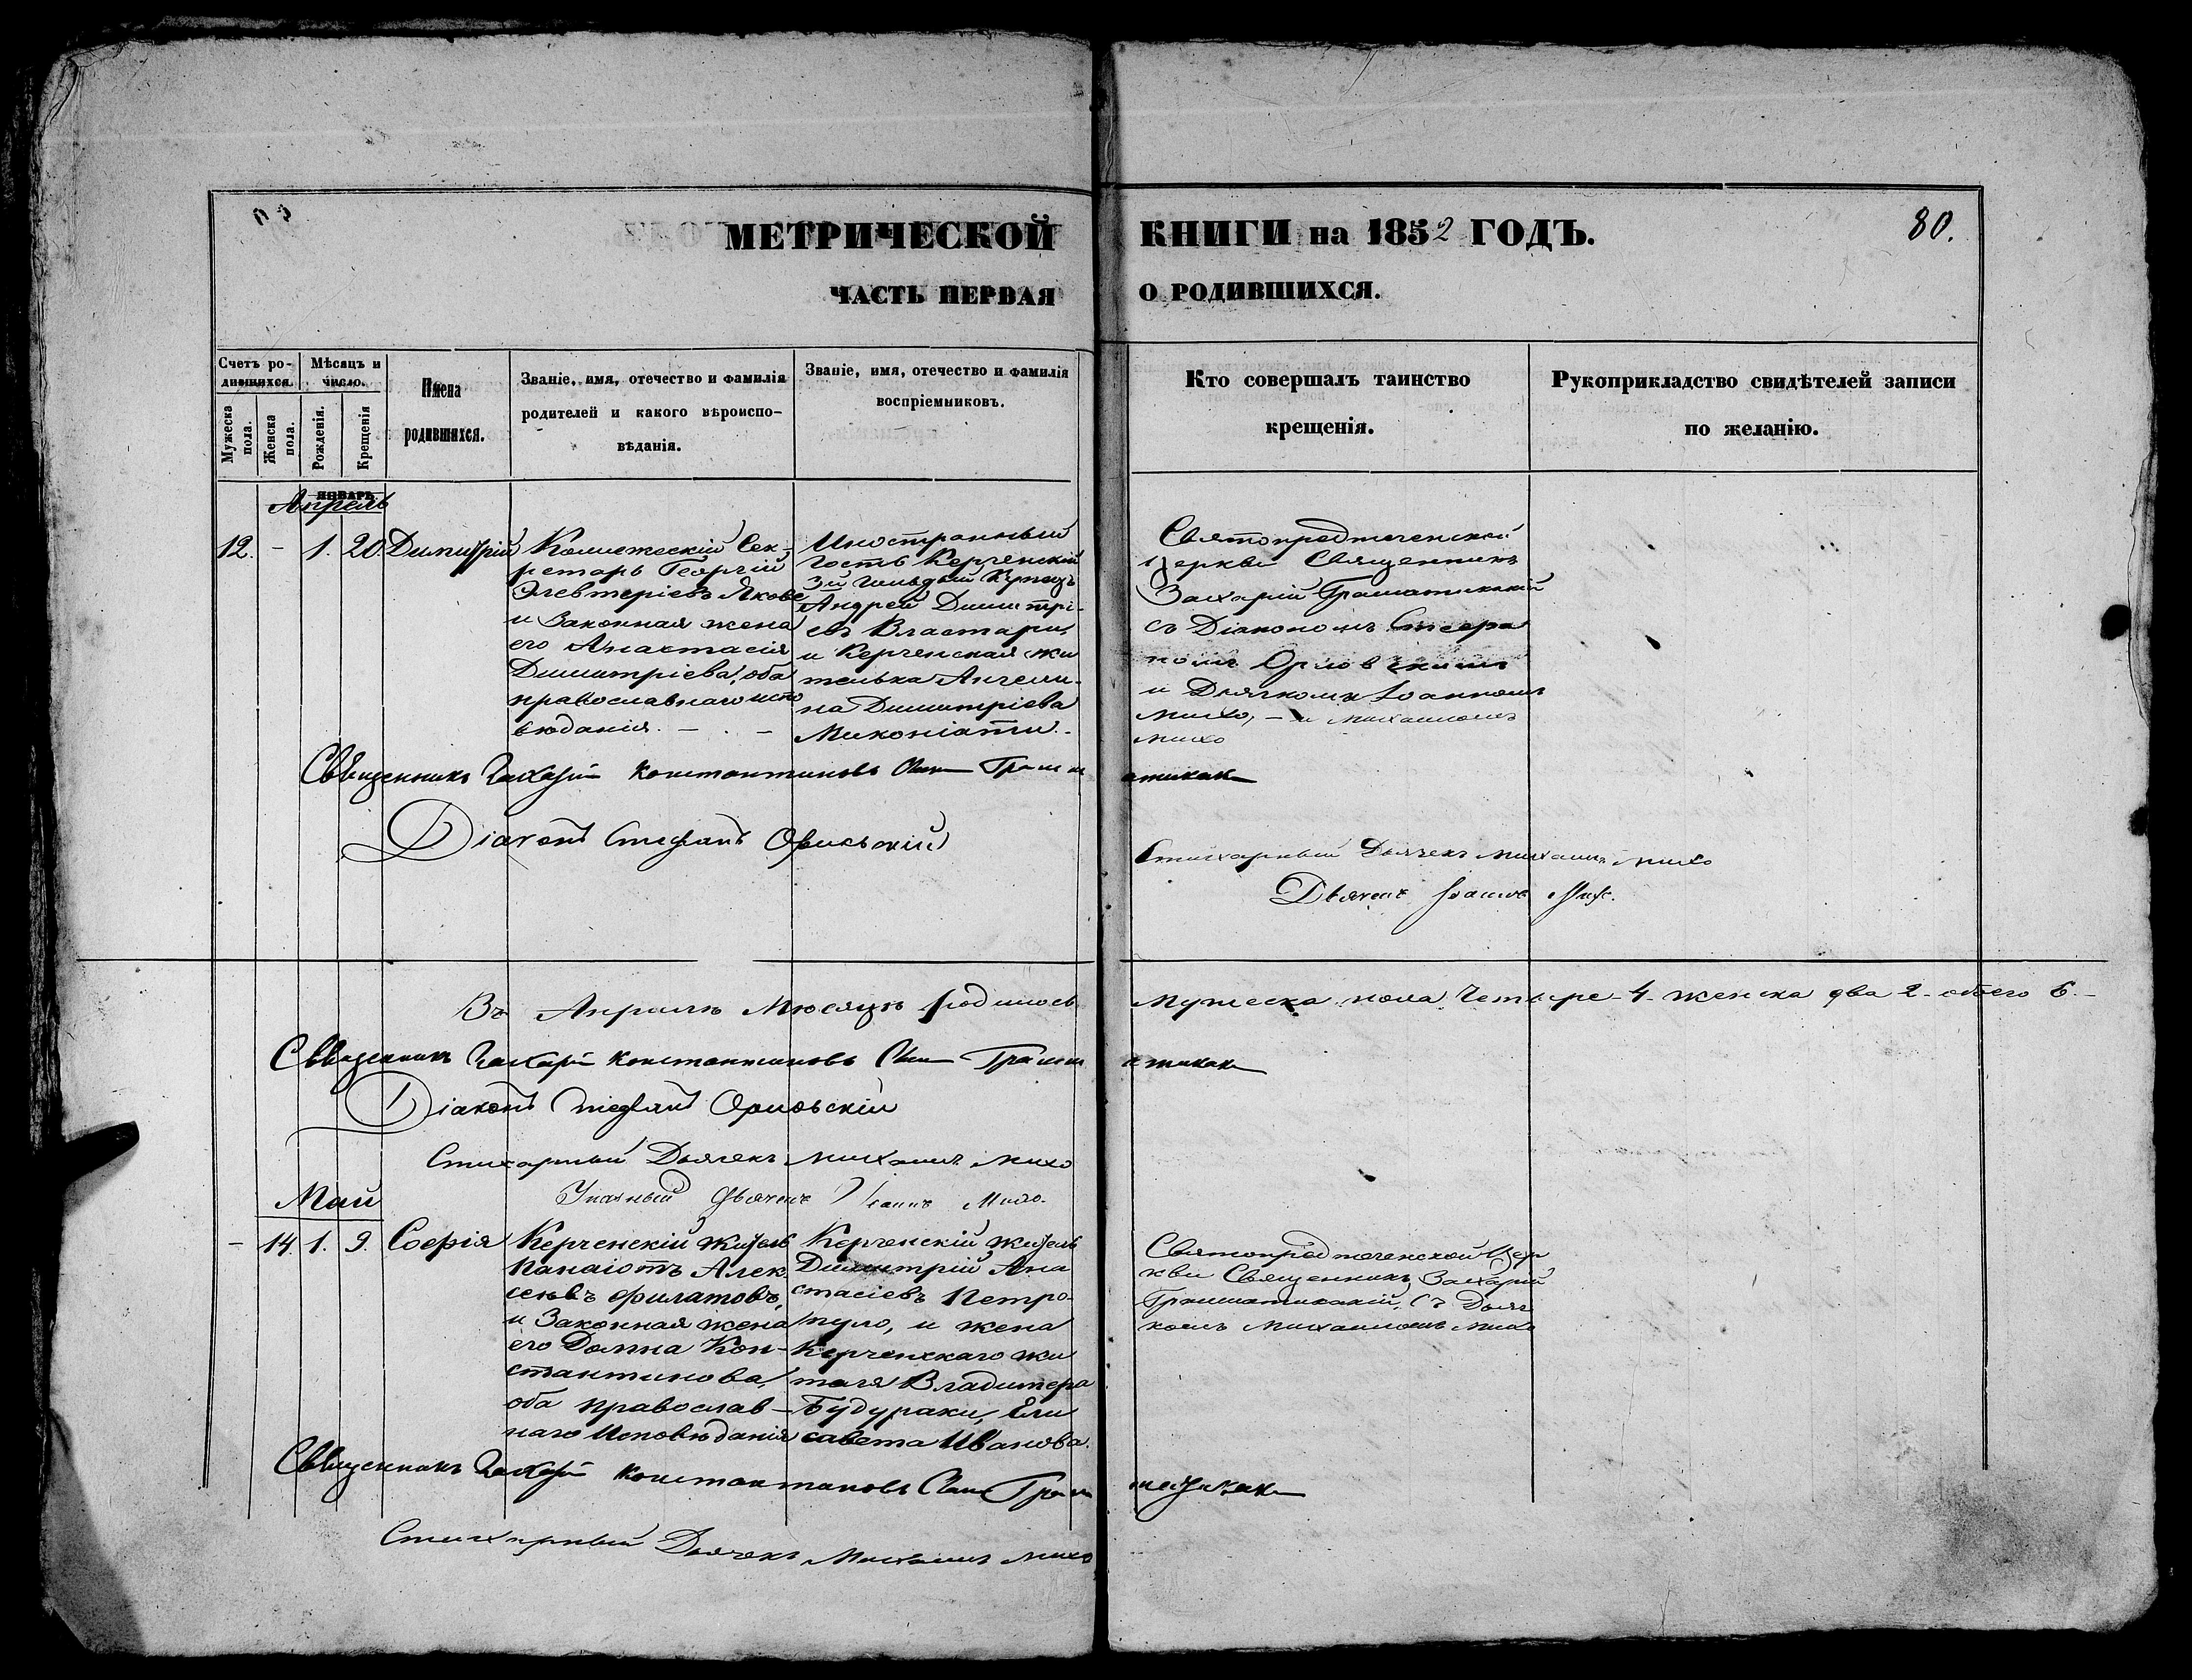 МЕТРИЧЕСКОЙ КНИГИ на 1852 ГОДЪ.
80.
ЧАСТЬ ПЕРВАЯ О РОДИВШИХСЯ.
Счетъ родившихся.
Мужеска пола.
Женска пола.
Мѣсяцъ и число.
Рожденія.
Крещенія
Имена
родившихся.
Званіе, имя, отечество и фамилія
родителей и какого вѣроиспо-
вѣданія.
Званіе, имя, отечество и фамилія
воспріемниковъ.
Кто совершалъ таинство
крещенія.
Рукоприкладство свидѣтелей записи
по желанію.
ЯНВАРЬ.
Апрель
12. - 1. 20 Димитрій
Коллежескій Сек-
ретарь Георгій
Элевтеріевъ Якове
и Законная жена
его Анастасія
Димитріева, оба
православнаго испо
вѣданія. -
Иностранный
Гость Керченскій
3й Гильдіи Купецъ
Андрей Димитрі-
евъ Властари,
и Керченская жи
телька Ангели-
на Димитріева
Микониати.-
Святопредтеченской
Церкви Священникъ
Захарій Грамматикакій
съ Діакономъ Стефа
номъ Орловскимъ
и Дьячкомъ Іоанномъ
Михо, - и Михаиломъ
Михо
Священникъ Захарій Константиновъ Сынъ Грамматикаки
Діаконъ Стефанъ Орловскій
Стихарный Дьячекъ Михаилъ Михо
Дьячекъ Іоаннъ Михо.
Въ Апрѣлѣ Мѣсяцѣ родилось Мужеска пола Четыре 4. женска два 2. обоего 6.-
Священникъ Захарій Константиновъ Сынъ Грамматикаки
Діаконъ Стефанъ Орловскій
Стихарный Дьячекъ Михаилъ Михо
Указный Дьячекъ Іоаннъ Михо.
Май
- 14. 1. 9. Софія
Керченскій житель
Панаіотъ Алек
сеевъ Филатовъ,
и Законная жена
его Домна Кон-
стантинова,
оба православ-
наго Исповѣданія
Керченскій житель
Димитрій Ана
стасіевъ Петро-
пуло, и жена
Керченскаго жи
теля Владимера
Будураки, Ели
савета Иванова.
Святопредтеченской Цер
кви Священникъ Захарій
Грамматикакій, Съ Дьяч
комъ Михаиломъ Михо
Священникъ Захарій Константиновъ Сынъ Грамматикаки
Стихарный Дьячекъ Михаилъ Михо